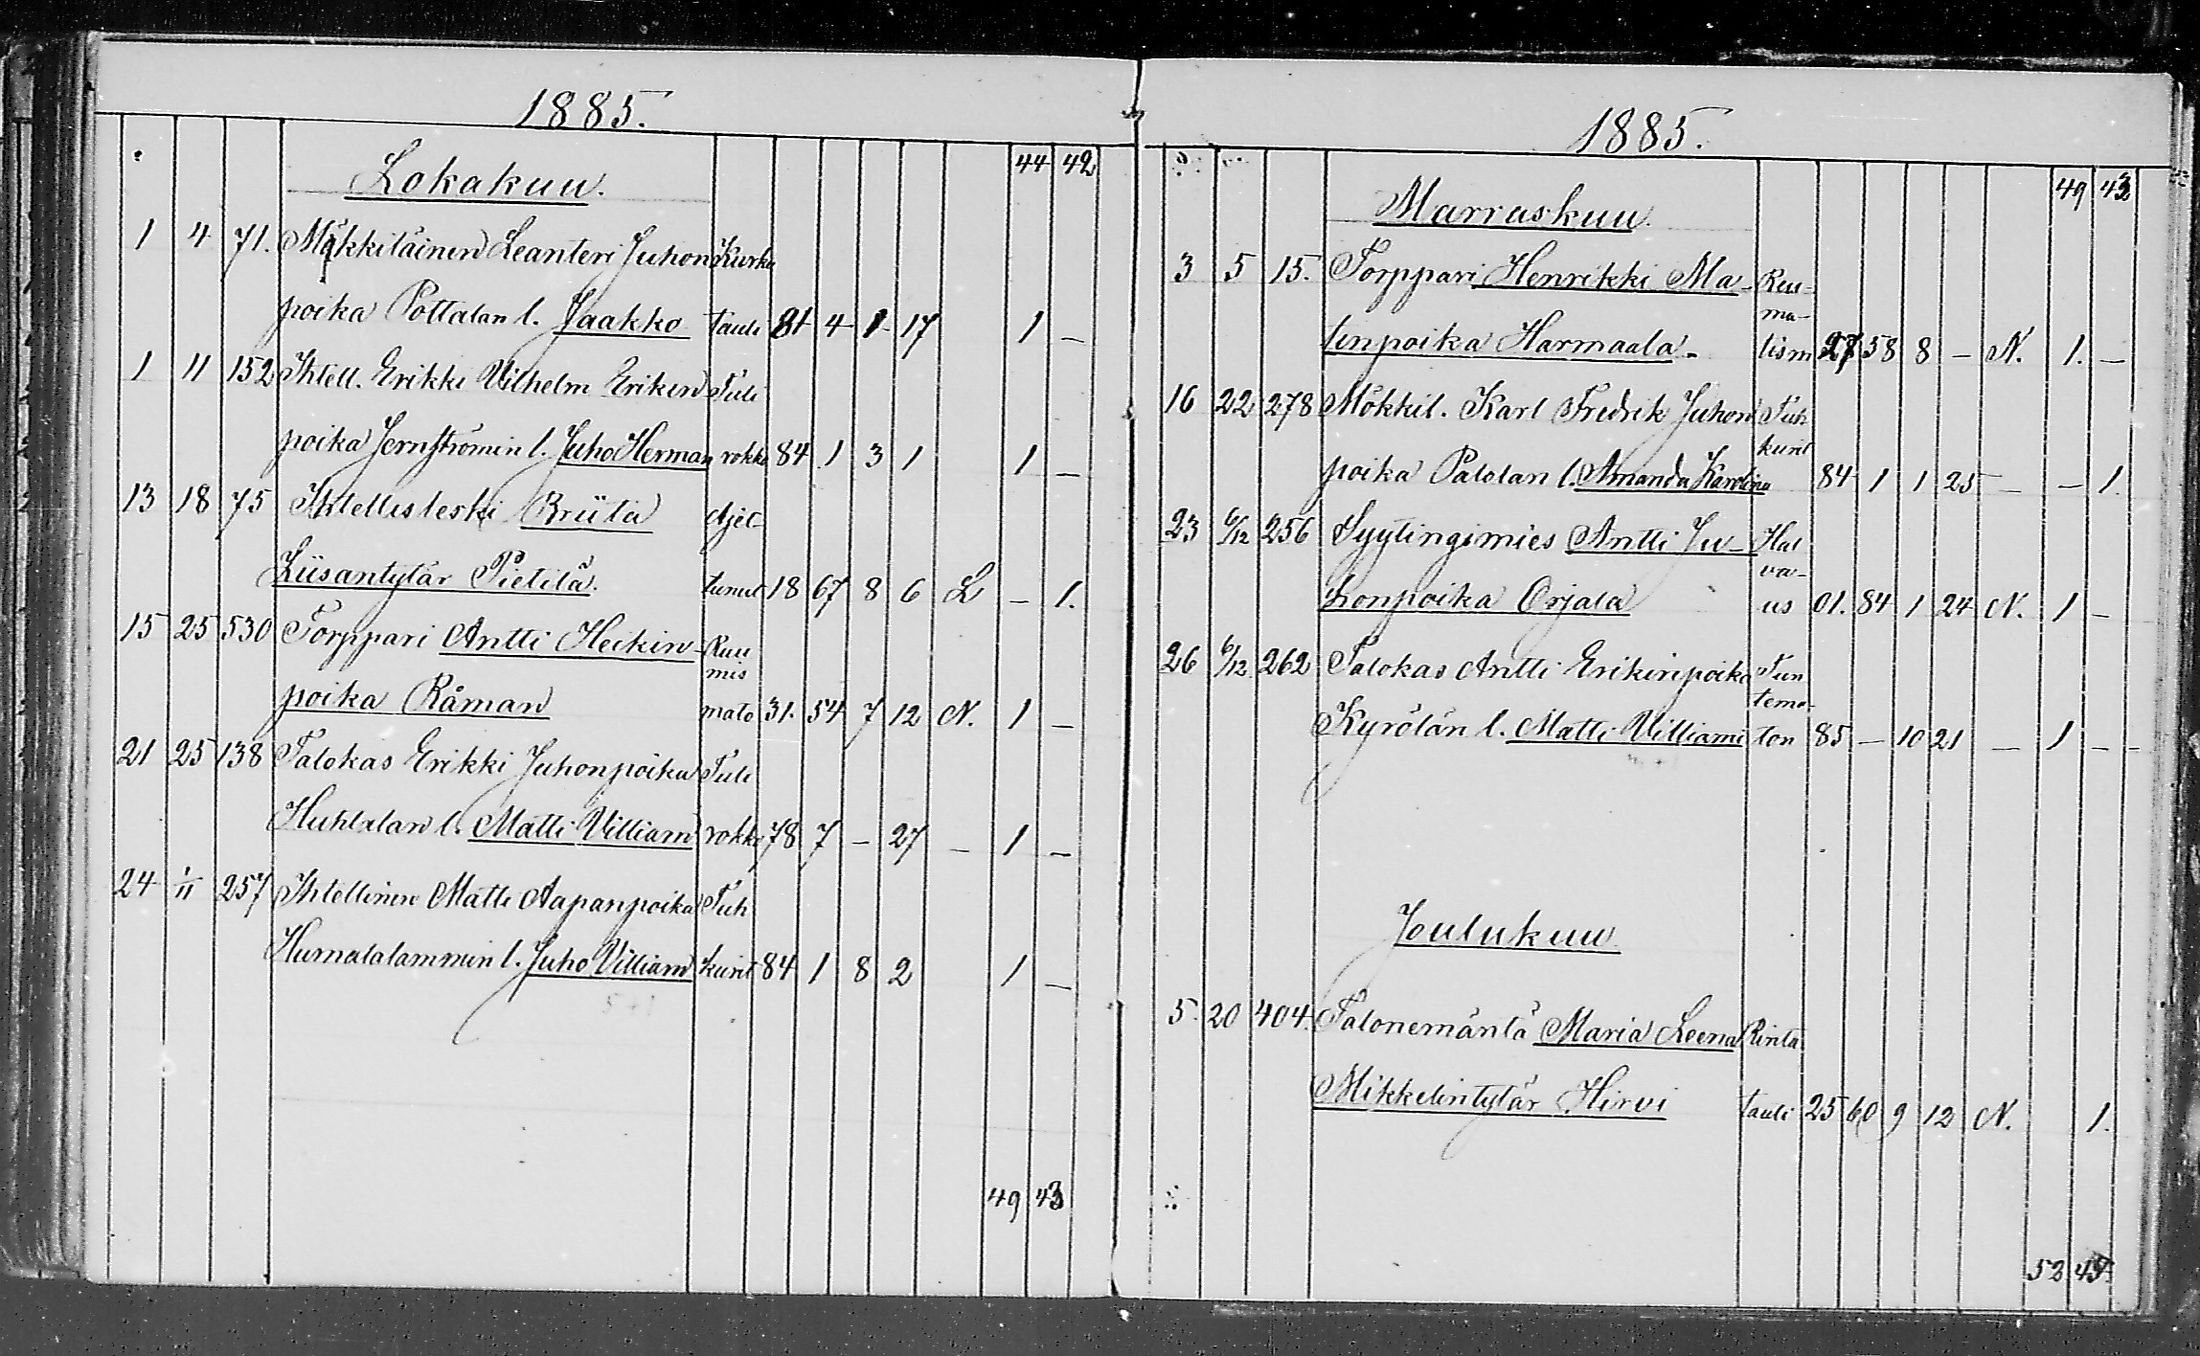 1885.
44 42
Lokakuu.
1 4 71. Mäkkiläinen Leanteri Juhon Kurku
poika Pottalan l. Jaakko tauti 81 4 1 17 1 –
1 11 152 Ihtell. Erikki Vilhelm Erikin Tuli
poika Jernströmin l. Juho Herman rokko 84 1 3 1 1 –
13 18 75 Ihtellisleski Briita Ajet
Liisantytär Pietilä. tunut 18 67 8 6 L – 1.
15 25 530 Torppari Antti Heikin Ruu
mis
poika Råman mato 31. 54 7 12 N. 1 –
21 25 138 Talokas Erikki Juhonpoika Tuli
Huhtalan l. Matti Villiam rokko 78 7 – 27 – 1 –
24 1/11 257 Ihtellinen Matti Aapanpoika Tuh
Humalalammin l. Juho Villiam kurit 84 1 8 2 1 –
5+1
49 43
1885.
49 43
Marraskuu.
3 5 15. Torppari Henrikki Ma- Reu-
ma-
tinpoika Harmaala. tism 27 58 8 – N. 1. –
16 22 278 Mökkil. Karl Fredrik Juhon Tuh
kurit
poika Palolan l. Amanda Karolina 84 1 1 25 – – 1.
23 6/12 256 Syytingimies Antti Ju- Hal
va-
honpoika Orjala us 01. 84 1 24 N. 1 –
26 6/12 262 Talokas Antti Erikinpoika Tun
tema-
Kyrölän l. Matti Villiami ton 85 – 10 21 – 1 –
Joulukuu
5. 20 404. Talonemäntä Maria Leena Rinta
Mikkelintytär Hirvi tauti 25 60 9 12 N. 1.
52 45